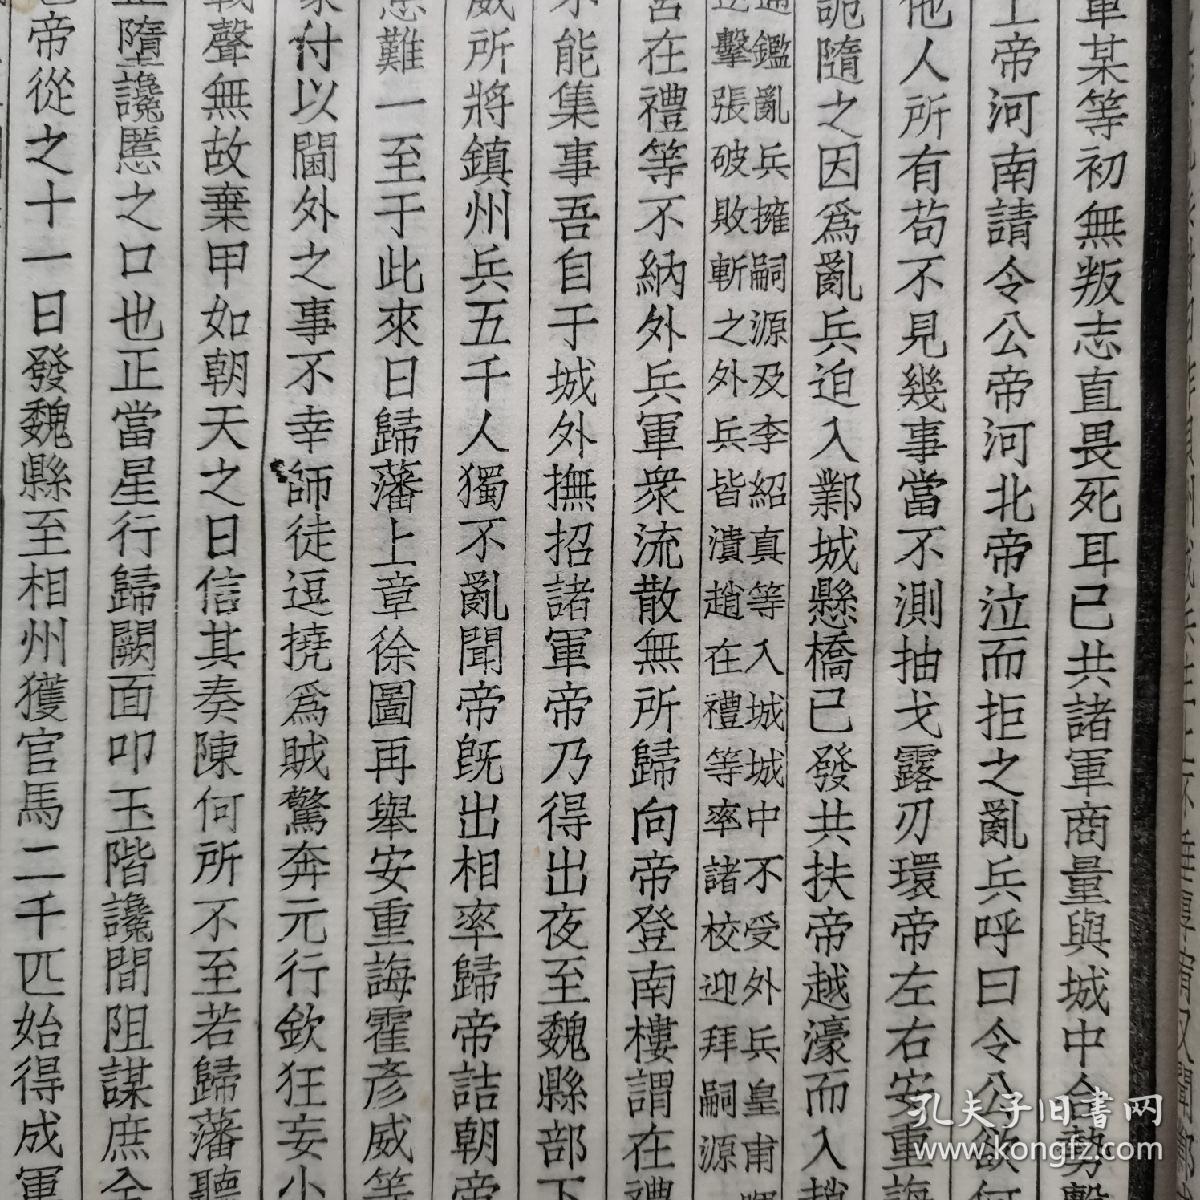 軍某等初無叛志直畏死耳已共諸軍商量與城中合勢擊
上帝河南請令公帝河北帝泣而拒之亂兵呼曰令公欲何
他人所有苟不見幾事當不測抽戈露刃環帝左右安重誨
詭隨之因爲亂兵迫入鄴城懸橋已發共扶帝越濠而入趙
通鑑亂兵擁嗣源及李紹真等入城城中不受外兵皇甫暉
逆擊張破敗斬之外兵皆潰趙在禮等率諸校迎拜嗣源
言在禮等不納外兵軍衆流散無所歸向帝登南樓謂在禮
不能集事吾自于城外撫招諸軍帝乃得出夜至魏縣部下
威所將鎮州兵五千人獨不亂聞帝既出相率歸帝詰朝帝
患難一至于此來日歸藩上章徐圖再舉安重誨霍彥威等
家付以閫外之事不幸師徒逗撓爲賊驚奔元行欽狂妄小
戰聲無故棄甲如朝天之日信其奏陳何所不至若歸藩聽
正墮讒慝之口也正當星行歸闕面叩玉階讒間阻謀庶全
帝從之十一日發魏縣至相州獲官馬二千匹始得成軍
孔夫子旧书网
www.kongfz.com